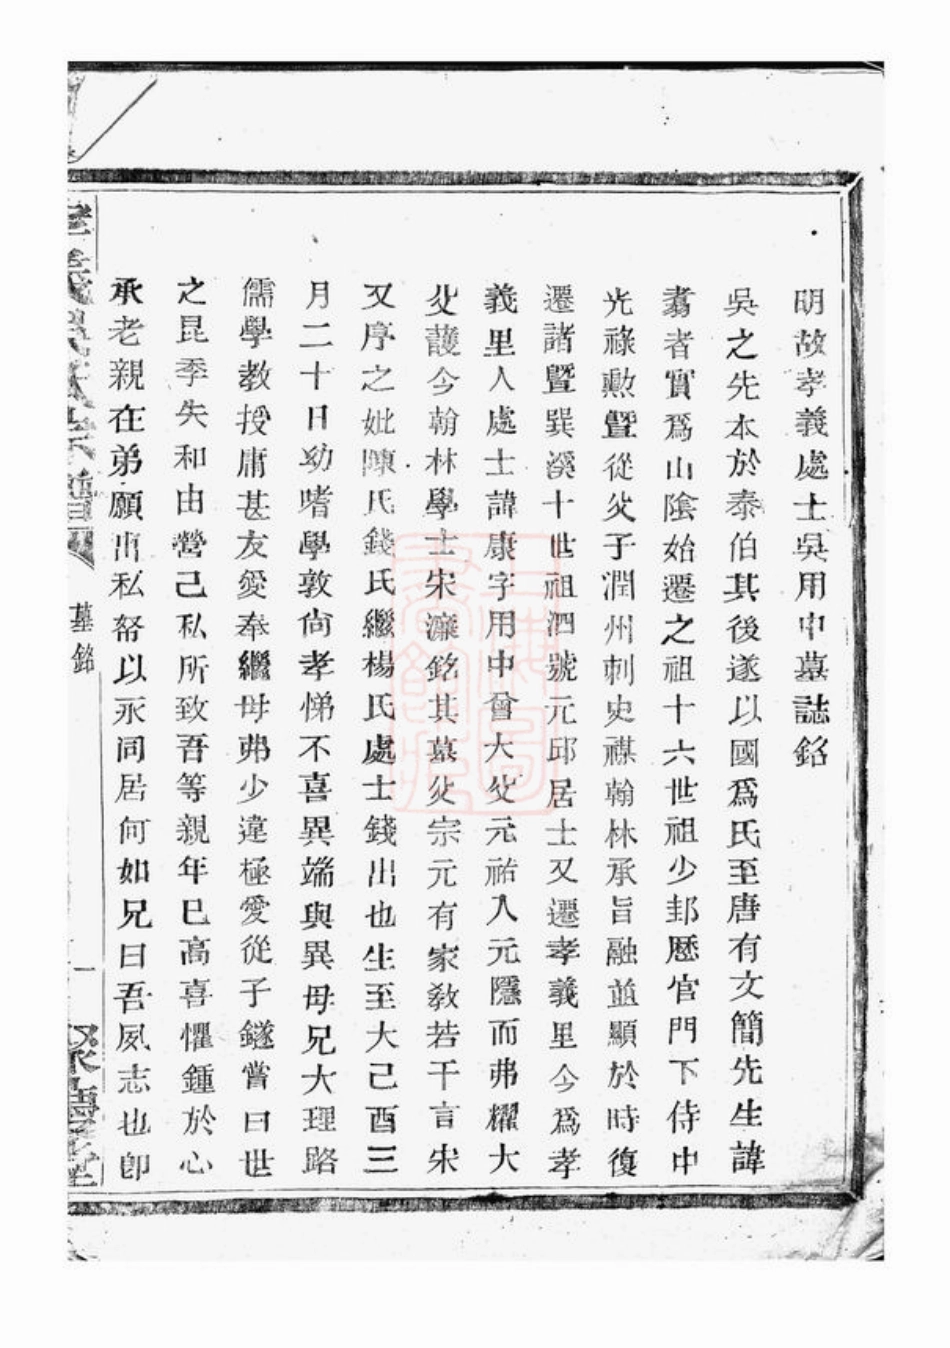 明故孝義處士吳用中墓誌銘
吳之先本於泰伯其後遂以國爲氏至唐有文簡先生諱
翥者實爲山陰始遷之祖十六世祖少邽歷官門下侍中
光祿勲暨從父子潤州刺史祺翰林承旨融並顯於時復
遷諸暨巽溪十世祖泗號元邱居士又遷孝義里今爲孝
義里人處士諱康字用中曾大父元祐入元隱而弗耀大
父護今翰林學士宋濂銘其墓父宗元有家敎若干言宋
又序之妣陳氏錢氏繼楊氏處士錢出也生至大己酉三
月二十日幼嗜學敦尙孝悌不喜異端與異母兄大理路
儒學教授庸甚友愛奉繼母弗少違極愛從子鐩嘗曰世
之昆季失和由營己私所致吾等親年巳高喜懼鍾於心
承老親在弟願出私帑以永同居何如兄曰吾夙志也卽
孝義吳氏宗譜
墓銘
一